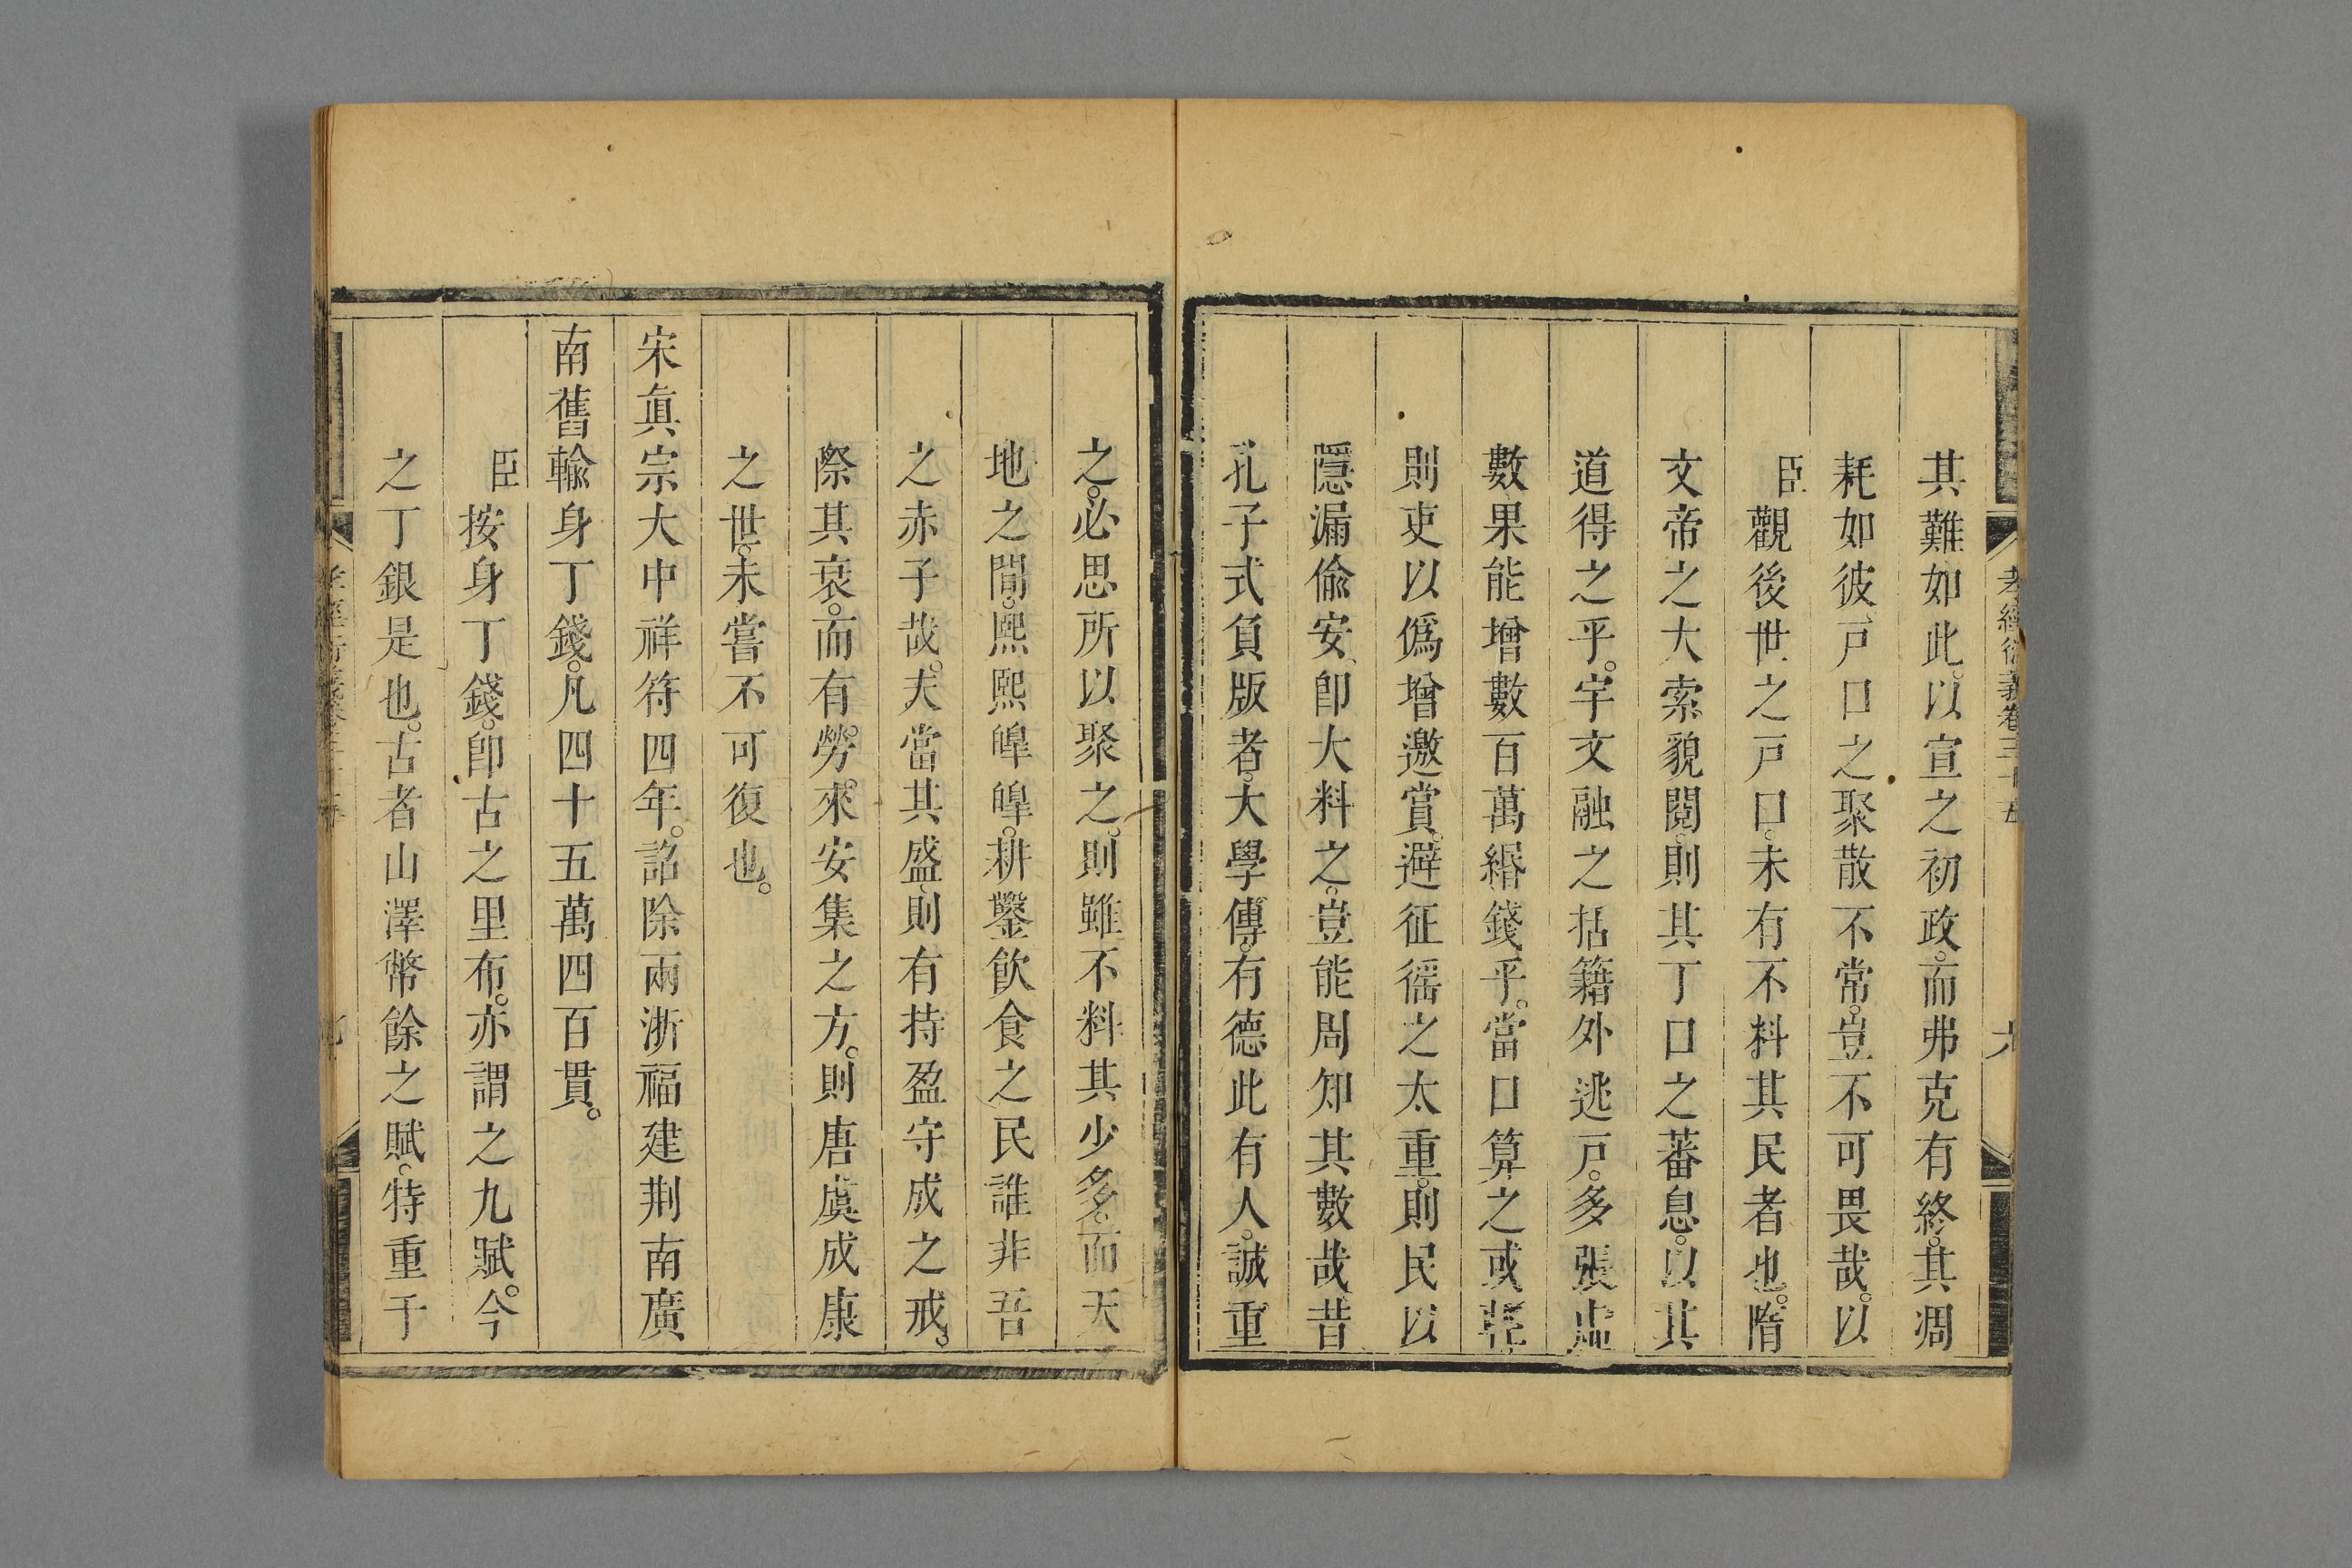 孝經衍義卷三十
其難如此。以宣之初政。而弗克有終。其凋
耗如彼、戸口之聚散不常。豈不可畏哉。以
臣觀後世之戸口。未有不料其民者也。隋
文帝之大索貌閱。則其丁口之蕃息。以其
道得之乎。宇文融之括籍外逃戸。多張虛
數果能增數百萬緡錢乎。當口算之或輕
則吏以僞增邀賞。避征徭之太重。則民以
隱漏偸安、卽大料之。豈能周知其數哉。昔
孔子式負版者。大學傳。有德此有人。誠重
之。必思所以聚之。則雖不料其少多。而天
地之間。熙熙皥皥。耕鑿飮食之民誰非吾
之赤子哉。夫當其盛、則有持盈守成之戒。
際其衰。而有勞。來。安集之方。則唐虞成康
之世。未嘗不可復也。
宋眞宗大中祥符四年。詔除兩浙福建荆南廣
南舊輸身丁錢。凡四十五萬四百貫。
臣按身丁錢。卽古之里布。亦謂之九賦。今
之丁銀是也。古者山澤幣餘之賦。特重于